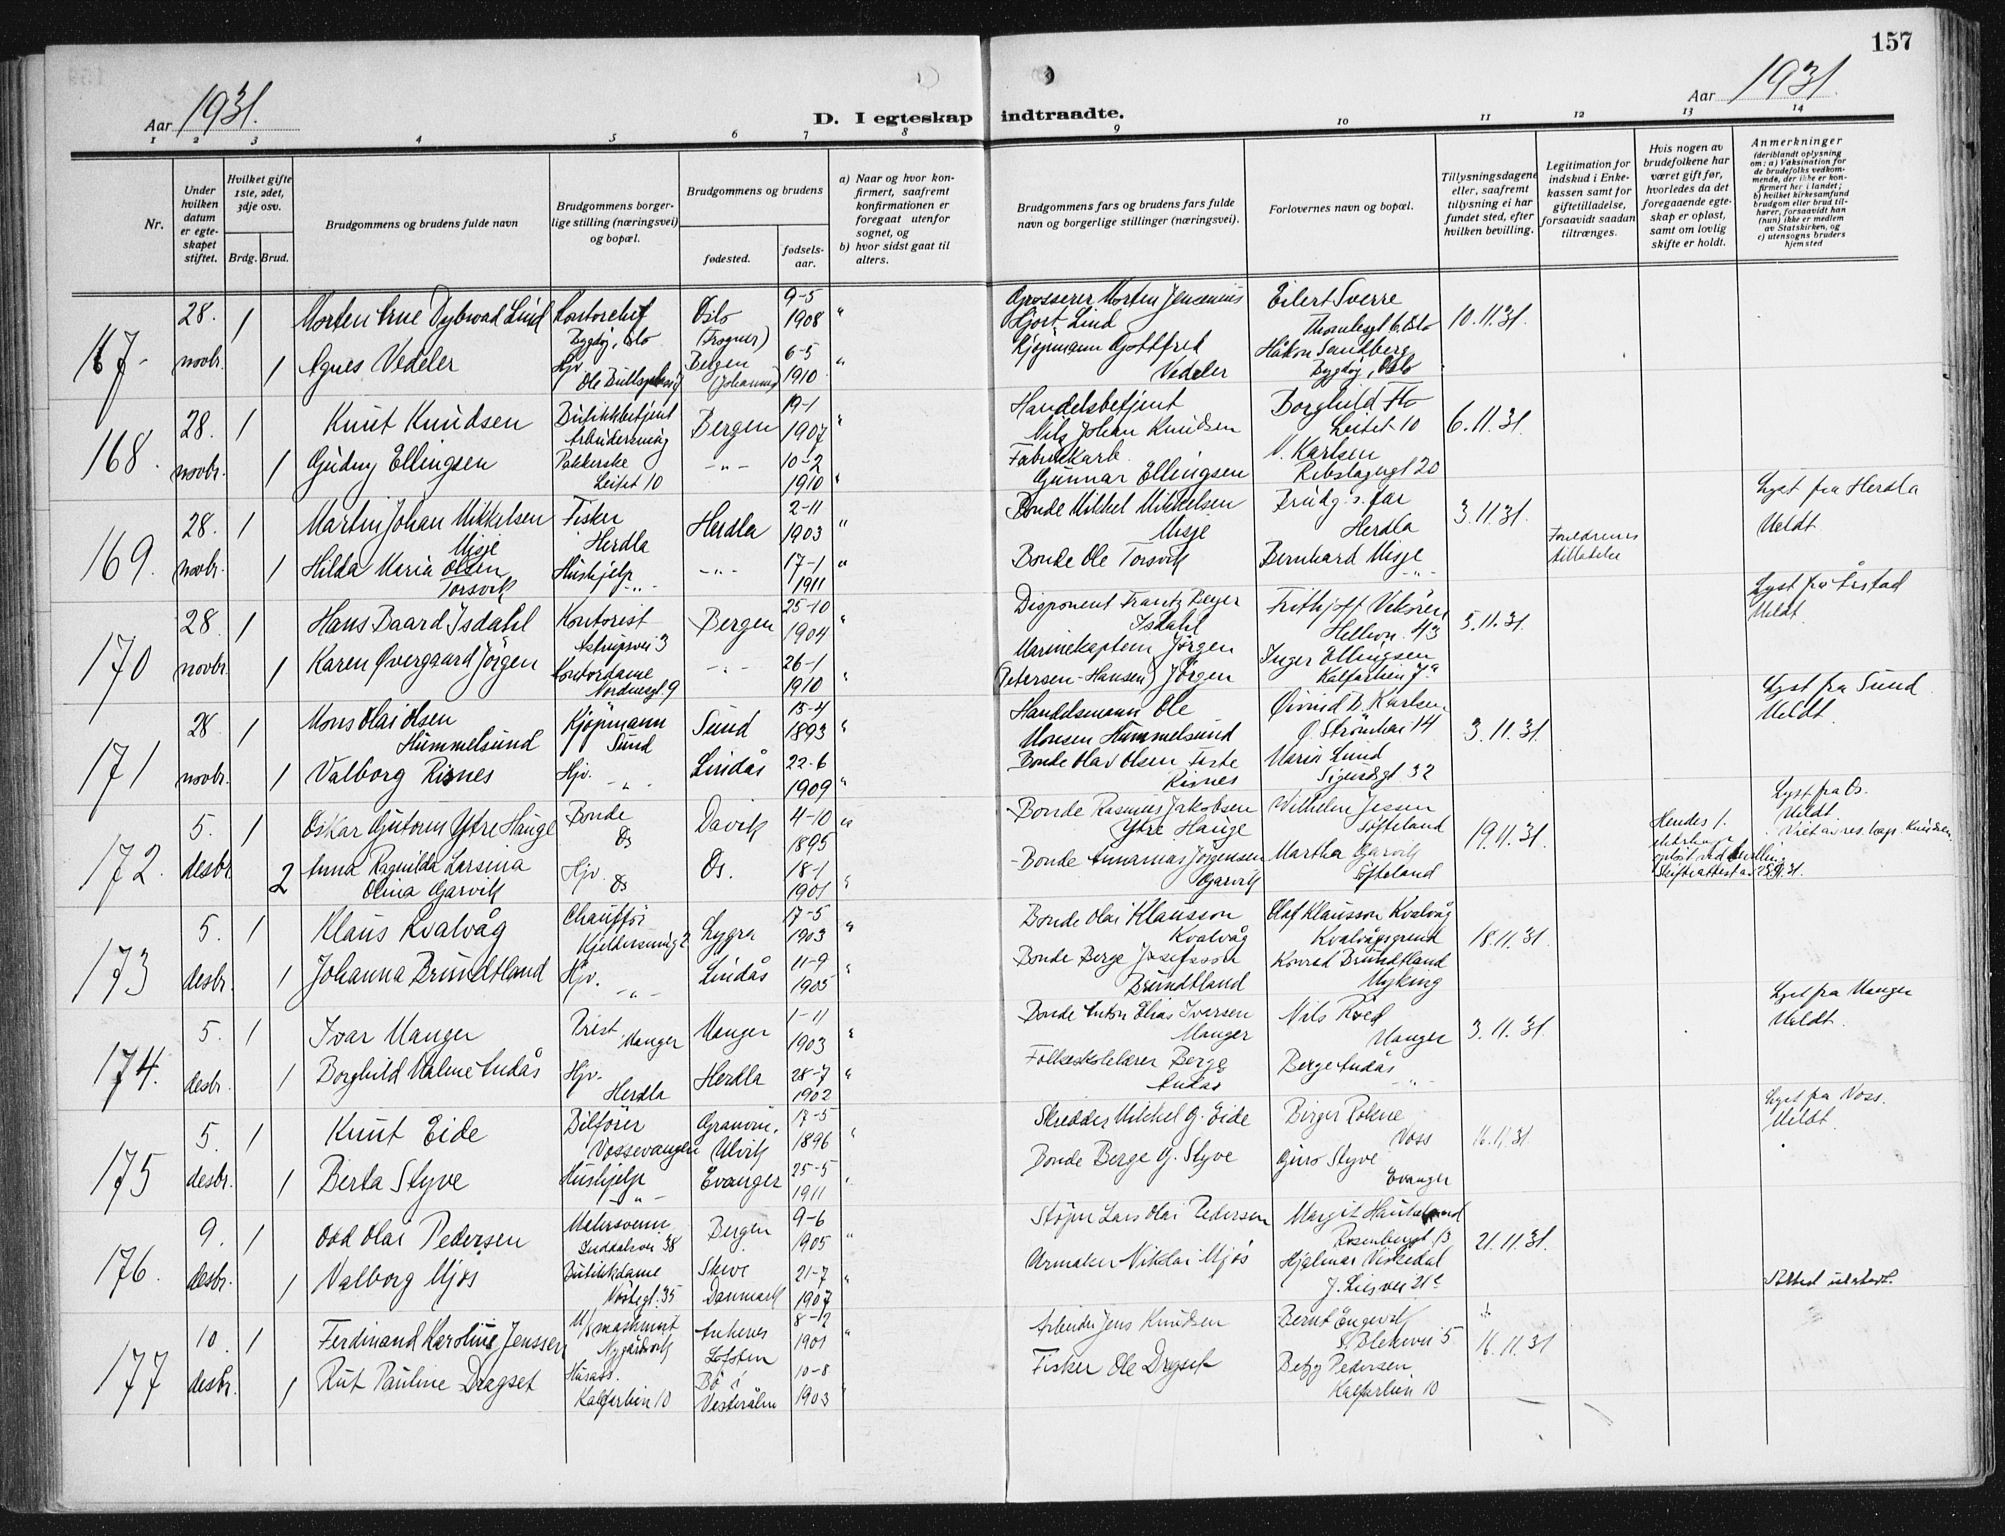 157
Aar 1931.
D. I egteskap indtraadte.
Aar 1931.
1 2 3 4 5 6 7 8 9 10 11 12 13 14
Nr.
Under hvilken datum er egteskapet stiftet.
Hvilket gifte 1ste, 2det, 3dje osv.
Brdg. Brud.
Brudgommens og brudens fulde navn
Brudgommens borgerlige stilling (næringsvei) og bopæl.
Brudgommens og brudens
fødested.
fødselsaar.
a) Naar og hvor konfirmert, saafremt konfirmationen er foregaat utenfor sognet, og
b) hvor sidst gaat til alters.
Brudgommens fars og brudens fars fulde navn og borgerlige stillinger (næringsvei).
Forlovernes navn og bopæl.
Tillysningsdagene eller, saafremt tillysning ei har fundet sted, efter hvilken bevilling.
Legitimation for indskud i Enkekassen samt for giftetilladelse, forsaavidt saadan tiltrænges.
Hvis nogen av brudefolkene har været gift før, hvorledes da det foregaaende egteskap er opløst, samt om lovlig skifte er holdt.
Anmerkninger (deriblandt oplysning om: a) Vaksination for de brudefolks vedkommende, der ikke er konfirmert her i landet; b) hvilket kirkesamfund brudgom eller brud tilhører, forsaavidt han (hun) ikke er medlem av Statskirken, og c) utensogns bruders hjemsted
167 28. novbr. 1 Morten Arne Dybwad Lind Kontorchef Bygdøy, Oslo Oslo (Frogner) 9-5 1908 " Grosserer Morten Jensenius Hjort-Lind Eilert Sverre 10.11.31.
1 Agnes Vedeler Hjv. Ole Bullsplass Bergen (Johannes) 6-5 1910 " Kjøpmann Gottfred Vedeler Håkon Sandberg Bygdøy, Oslo
168. 28. novbr. 1 Knut Knudsen Butikkbetjent Bergen 19-1 1907 " Handelsbetjent Nils Johan Knudsen Borghild Flo Leitet 10 6.11.31.
1 Gudny Ellingsen Pakkerske Leitet 10 -"- 10-2 1910 " Fabrikkarb. Gunnar Ellingsen V. Karlsen Rebslagergt 20
169. 28. novbr. 1 Martin Johan Mikkelsen Misje Fisker Herdla Herdla 2-11 1903 " Bonde Mikkel Mikkelsen Misje Brudg.s far Herdla 3.11.31. Lyst fra Herdla Meldt.
1 Hilda Maria Olsen Torsvik Hushjelp -"- -"- 17-1 1911 " Bonde Ole Torsvik Bernhard Misje -"- Foreldrenes tilladelse
170 28 novbr. 1 Hans Baard Isdahl Kontorist Astrupsvei 3 Bergen 25-10 1904 " Disponent Frantz Beyer Isdahl Frithjoff Vikören 5.11.31. Lyst fra Årstad Meldt.
1 Karen Overgaard Jörgen Kontordame Nordnesgt 9 -"- 26-1 1910 " Marinekaptein Jörgen (Petersen-Hansen) Jörgen Inger Ellingsen Kalfarlien 7a
171 28 novbr. 1 Mons Olai Olsen Hummelsund Kjøpmann Sund Sund 15-4 1893 " Handelsmann Ole Monsen Hummelsund Øivind B. Karlsen 3.11.31. Lyst fra Sund Meldt.
1 Valborg Risnes Hjv. -"- Lindås 22-6 1909 " Bonde Olav Olsen Risnes Maria Lund Sigurdsgt 32
172. 5. desbr. 1 Oskar Gutorm Ytre Hauge Bonde Os Davik 4-10 1895 " Bonde Rasmus Jakobsen Ytre Hauge Wilhelm Jessen Søfteland 19.11.31. Lyst fra Os. Meldt.
2 Anna Ragnilda Larsina Olina Gjarvik Hjv. Os Os. 18-1 1901 " Bonde Annanias Jørgensen Gjarvik Martha Gjarvik Søfteland
173 5. desbr. 1 Klaus Kvalvåg Chauffør Lygra 17-5 1903 " Bonde Olai Klausson Kvalvåg Olaf Klausson Kvalvåg Kvalvågsgrend 18.11.31.
1 Johanna Brundtland Hjv. -"- Lindås 11-9 1905 " Bonde Berge Josefsson Brundtland Konrad Brundtland Myking
174. 5. desbr. 1 Ivar Manger Prest Manger Manger 1-11 1903 " Bonde Anton Elias Iversen Manger Nils Roed Manger 3.11.31. Lyst fra Manger Meldt.
1 Borghild Malene Andås Hjv. Herdla Herdla 28-7 1902 " Folkeskolelærer Berge Andås Berge Andås -"-
175 5. desbr. 1 Knut Eide Bilfører Vossevangen Granvin, Ulvik 17-5 1896 " Skredder Mikkel G. Eide Birger Rokne Voss 16.11.31. Lyst fra Voss. Meldt.
1 Berta Styve Hushjelp -"- Evanger 25-5 1911 " Bonde Berge G. Styve Guro Styve Evanger
176. 9. desbr. 1 Odd Olai Pedersen Malersvenn Bergen 9-6 1905 " Støper Lars Olai Pedersen Margit Haukeland Rosenbergt 13 21.11.31.
1 Valborg Mjøs Butikkdame Skive Danmark 21-7 1907 " Urmaker Nikolai Mjøs Hjalmar Viskedal J. Lies vei 21c
177 10. desbr. 1 Ferdinand Karolius Jenssen 1901 " Arbeider Jens Knudsen Bernt Engevik 16.11.31
1 Rut Pauline Dragset Husass. Kalfarlien 10 Bö i Vesterålen 10-8 1903 " Fisker Ole Dragset Betzy Pedersen Kalfarlien 10